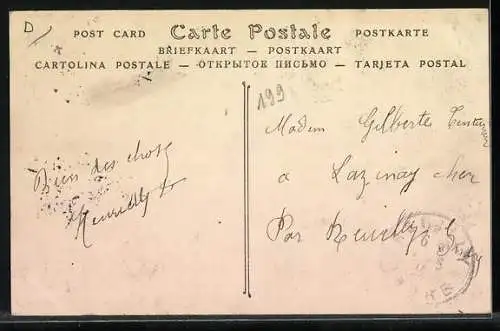 D
POST CARD Carte Postale POSTKARTE
BRIEFKAART — POSTKAART
CARTOLINA POSTALE — ОТКРЫТОЕ ПИСЬМО — TARJETA POSTAL
199
Bien des chose
Madem Gilberte
a Lazinay cher
Par Reuilly Indre